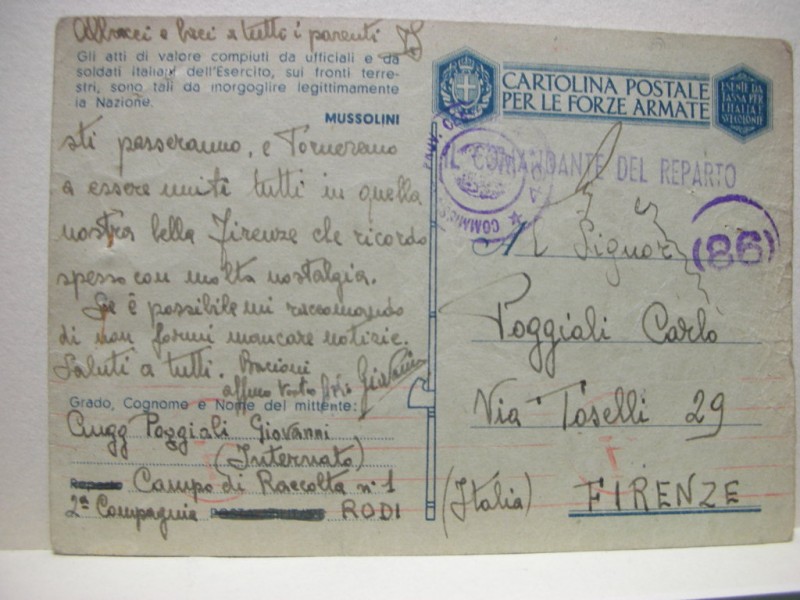 Abbracci e baci a tutti i parenti
Gli atti di valore compiuti da ufficiali e da
soldati italiani dell'Esercito, sui fronti terre-
stri, sono tali da inorgoglire legittimamente
la Nazione.
MUSSOLINI
sti passeranno, e Torneremo
a essere uniti tutti in quella
nostra bella Firenze che ricordo
spesso con molta nostalgia.
Se è possibile mi raccomando
di non farmi mancare notizie.
Saluti a tutti. Bacioni
affmo vostro Giovanni
Grado, Cognome e Nome del mittente:
Poggiali Giovanni
(Internato)
Reparto Campo di Raccolta n° 1
2ª Compagnia RODI
CARTOLINA POSTALE
PER LE FORZE ARMATE
ESENTE DA
TASSA PER
L'ITALIA E
SUE COLONIE
IL COMANDANTE DEL REPARTO
(86)
Al Signor
Poggiali Carlo
Via Toselli 29
(Italia) FIRENZE